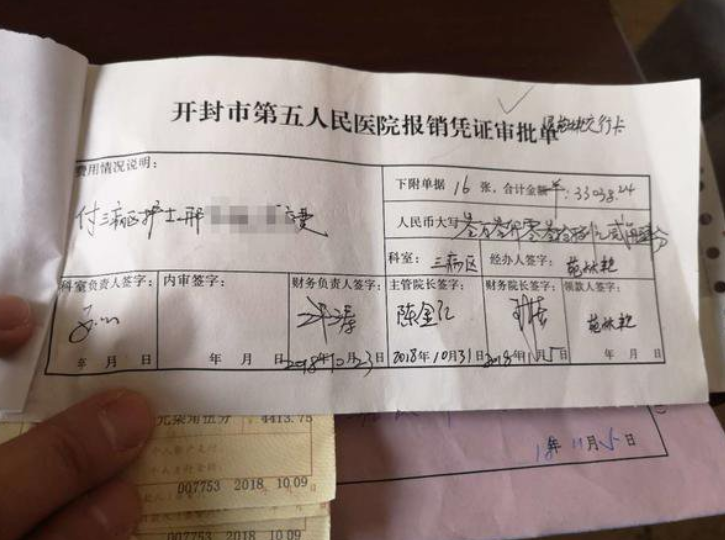 开封市第五人民医院报销凭证审批单
费用情况说明:
付三病区护士邢
费
下附单据 16 张，合计金额 ¥:33038.24
人民币大写
叁万叁仟零叁拾捌元贰角肆分
科室: 三病区 经办人签字:
科室负责人签字: 内审签字: 财务负责人签字: 主管院长签字: 财务院长签字: 领款人签字:
陈金
年 月 日 年 月 日 2018年10月23日 2018年10月31日 2018年11月5日 年 月 日
元柒角伍分 4413.75
007753 2018 10.09
11月5日
2018 10.09